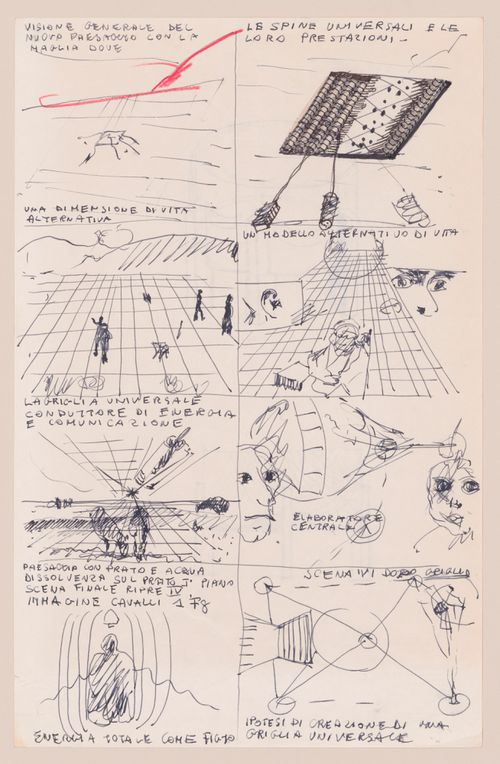 VISIONE GENERALE DEL
NUOVO PAESAGGIO CON LA
MAGLIA DOVE
LE SPINE UNIVERSALI E LE
LORO PRESTAZIONI
UNA DIMENSIONE DI VITA
ALTERNATIVA
UN MODELLO ALTERNATIVO DI VITA
LA GRIGLIA UNIVERSALE
CONDUTTORE DI ENERGIA
E COMUNICAZIONE
ELABORATORE
CENTRALE
PAESAGGIO CON PRATO E ACQUA
DISSOLVENZA SUL PRATO I° PIANO
SCENA FINALE RIPRE IV
IMMAGINE CAVALLI
SCENA IVI DOPO GRIGLIA
ENERGIA TOTALE COME
IPOTESI DI CREAZIONE DI UNA
GRIGLIA UNIVERSALE